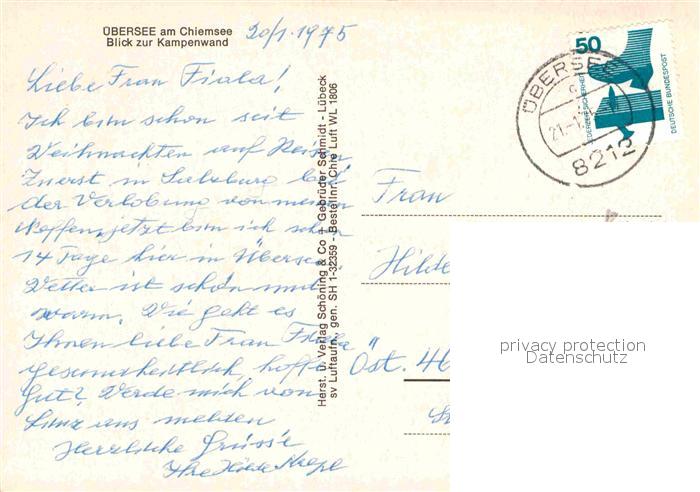 ÜBERSEE am Chiemsee
Blick zur Kampenwand
20/1. 1975
Liebe Frau Fiala!
Ich bin schon seit
Weihnachten auf Reisen
Zuerst in Salzburg bei
der Verlobung von meinem
Neffen, jetzt bin ich schon
14 Tage hier in Übersee
Wetter ist schön und
warm. Wie geht es
Ihnen liebe Frau Fiala
gesundheitlich, hoffe
gut? Werde mich von
Linz aus melden
Herzliche Grüsse
Ihre Hilde
Herst. u. Verlag Schöning & Co + Gebrüder Schmidt - Lübeck
sv Luftaufn. gen. SH 1-32359 - Bestellnr. Chre Luft WL 1806
50
JEDERZEIT SICHERHEIT
DEUTSCHE BUNDESPOST
ÜBERSEE
21.-1.
8212
Frau
Hilde
Öst. 46
privacy protection
Datenschutz